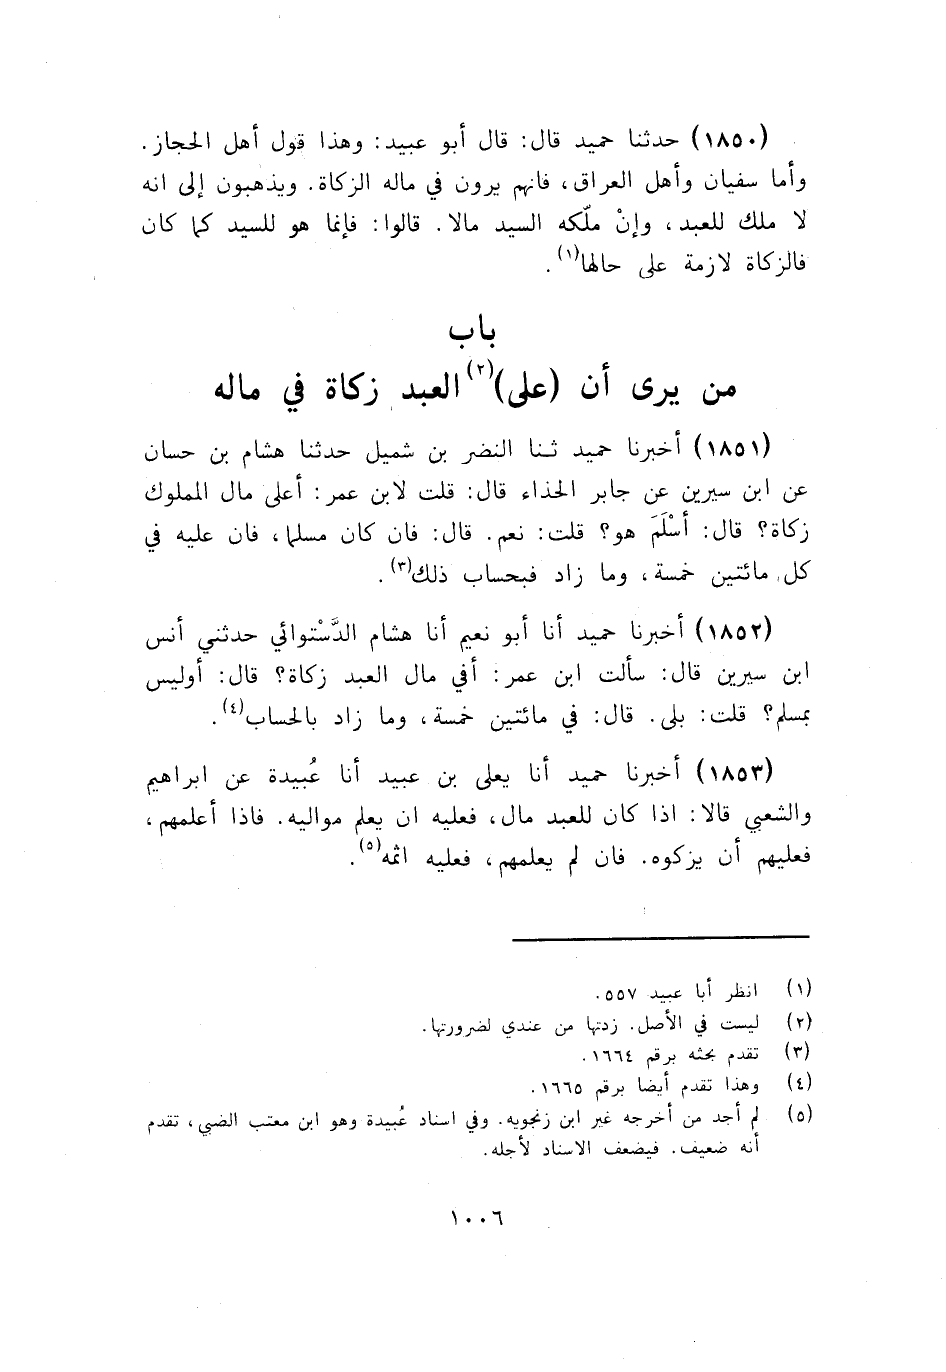 (١٨٥٠) حدثنا حميد قال: قال أبو عبيد: وهذا قول أهل الحجاز.
وأما سفيان وأهل العراق، فانهم يرون في ماله الزكاة. ويذهبون إلى انه
لا ملك للعبد، وإنْ ملّكه السيد مالا. قالوا: فإنما هو للسيد كما كان
فالزكاة لازمة على حالها(١).
باب
من يرى أن (على)(٢) العبد زكاة في ماله
(١٨٥١) أخبرنا حميد ثنا النضر بن شميل حدثنا هشام بن حسان
عن ابن سيرين عن جابر الحذاء قال: قلت لابن عمر: أعلى مال المملوك
زكاة؟ قال: أسْلَمَ هو؟ قلت: نعم. قال: فان كان مسلما، فان عليه في
كل مائتين خمسة، وما زاد فبحساب ذلك(٣).
(١٨٥٢) أخبرنا حميد أنا أبو نعيم أنا هشام الدَّسْتوائي حدثني أنس
ابن سيرين قال: سألت ابن عمر: أفي مال العبد زكاة؟ قال: أوليس
بمسلم؟ قلت: بلى. قال: في مائتين خمسة، وما زاد بالحساب(٤).
(١٨٥٣) أخبرنا حميد أنا يعلى بن عبيد أنا عُبيدة عن ابراهيم
والشعبي قالا: اذا كان للعبد مال، فعليه ان يعلم مواليه. فاذا أعلمهم،
فعليهم أن يزكوه. فان لم يعلمهم، فعليه اثمه(٥).
(١) انظر أبا عبيد ٥٥٧.
(٢) ليست في الأصل. زدتها من عندي لضرورتها.
(٣) تقدم بحثه برقم ١٦٦٤.
(٤) وهذا تقدم أيضا برقم ١٦٦٥.
(٥) لم أجد من أخرجه غير ابن زنجويه. وفي اسناد عُبيدة وهو ابن معتب الضبي، تقدم
أنه ضعيف. فيضعف الاسناد لأجله.
١٠٠٦